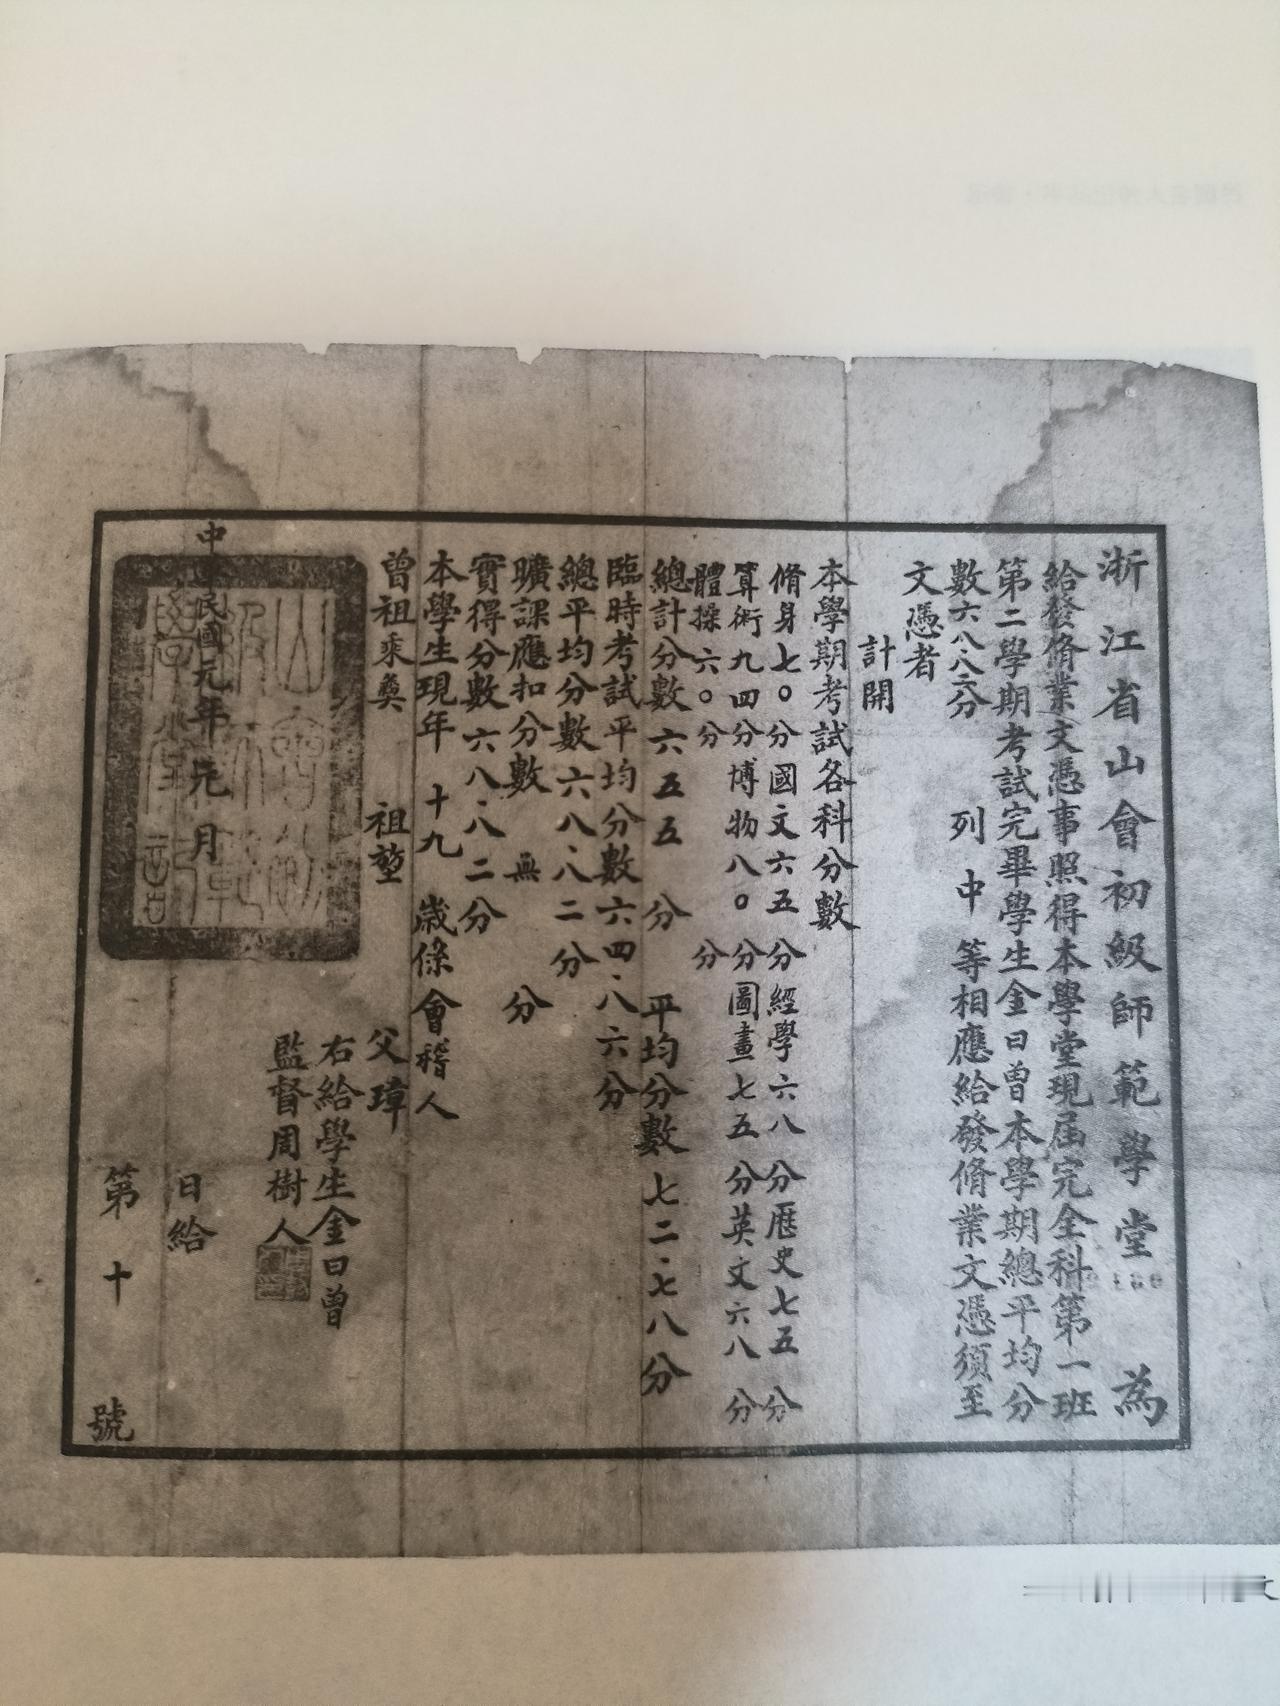 浙江省山會初級師範學堂　為
給發脩業文憑事照得本學堂現屆完全科第一班
第二學期考試完畢學生金曰曾本學期總平均分
數六八·八二分　列中等相應給發脩業文憑須至
文憑者
計開
本學期考試各科分數
脩身七〇分國文六五分經學六八分歷史七五分
算術九四分博物八〇分圖畫七五分英文六八分
體操六〇分　分
總計分數六五五分　平均分數七二·七八分
臨時考試平均分數六四·八六分
總平均分數六八·八二分
曠課應扣分數　無　分
實得分數六八·八二分
本學生現年　十九　歲係會稽人
曾祖乘奠　祖堃　父璋
右給學生金曰曾
監督周樹人
中華民國元年元月　日給
第十號